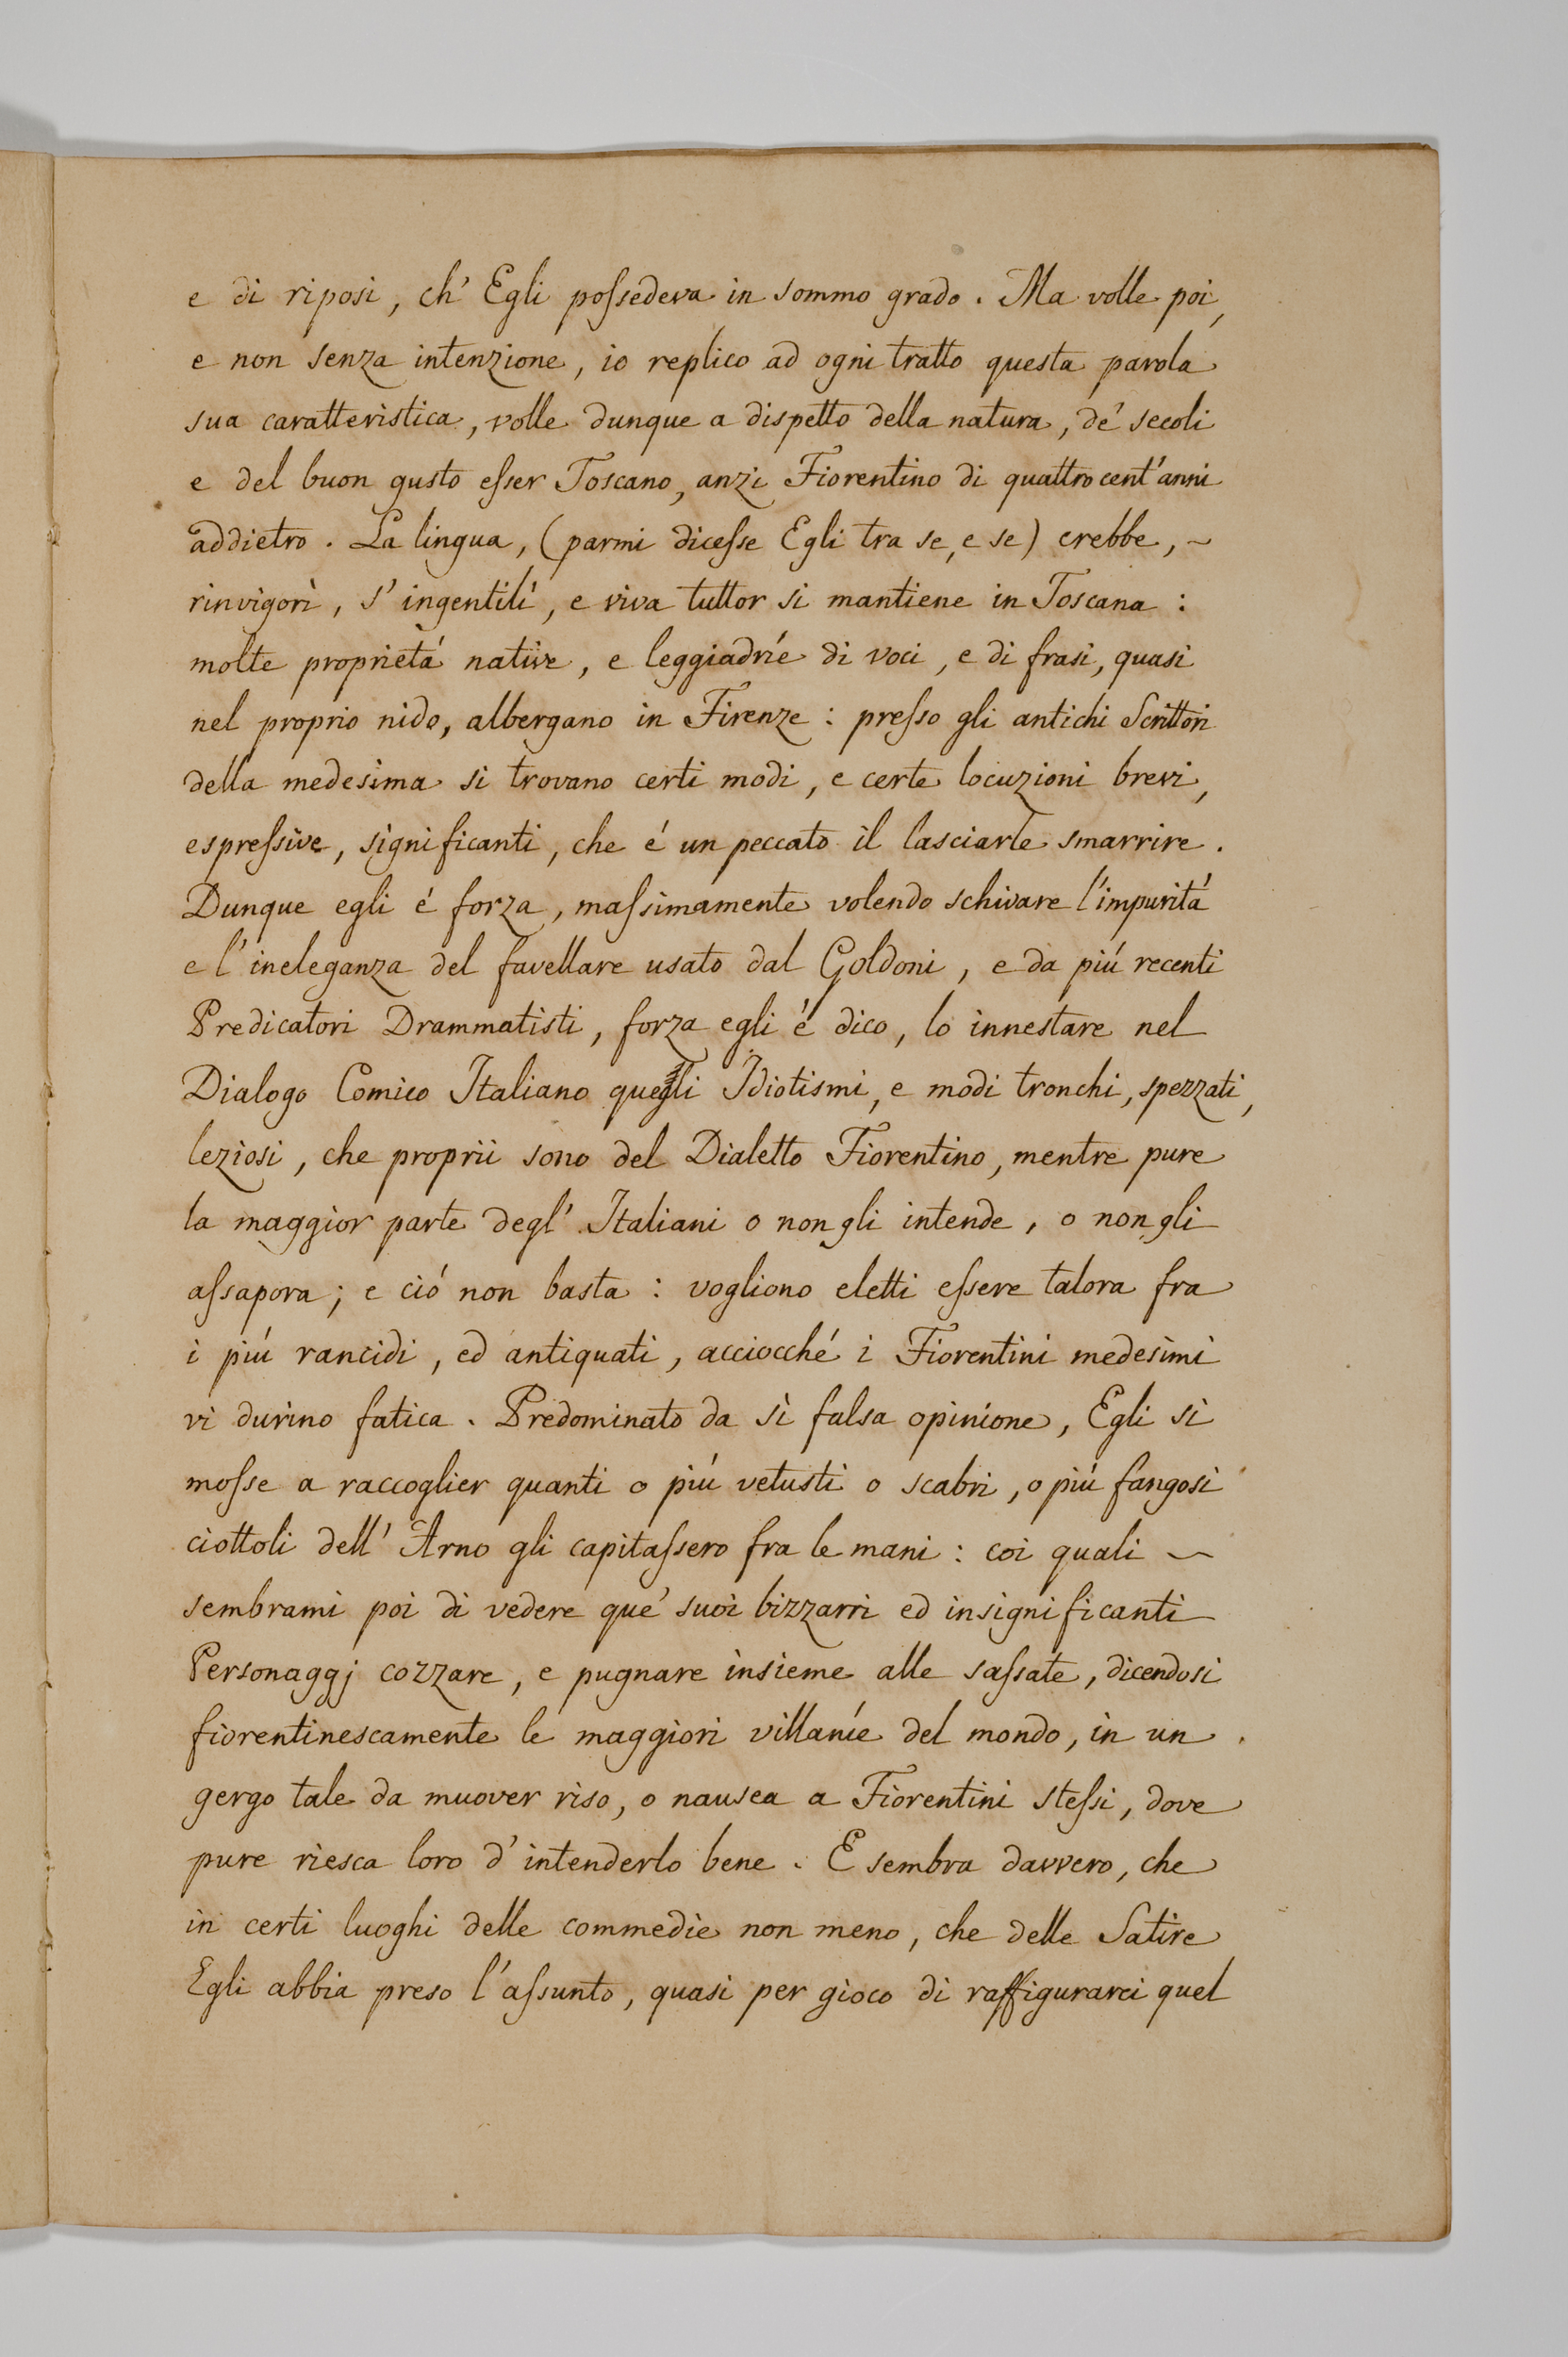 e di riposi, ch' Egli possedeva in sommo grado. Ma volle poi,
e non senza intenzione, io replico ad ogni tratto questa parola
sua caratteristica, volle dunque a dispetto della natura, de' secoli
e del buon gusto esser Toscano, anzi Fiorentino di quattrocent'anni
addietro. La lingua, (parmi dicesse Egli tra se, e se) crebbe, ~
rinvigorì, s' ingentilì, e viva tuttor si mantiene in Toscana:
molte proprietá native, e leggiadríe di voci, e di frasi, quasi
nel proprio nido, albergano in Firenze: presso gli antichi Scrittori
della medesima si trovano certi modi, e certe locuzioni brevi,
espressive, significanti, che é un peccato il lasciarle smarrire.
Dunque egli é forza, massimamente volendo schivare l'impuritá
e l'ineleganza del favellare usato dal Goldoni, e da piú recenti
Predicatori Drammatisti, forza egli é dico, lo innestare nel
Dialogo Comico Italiano quegli Idiotismi, e modi tronchi, spezzati,
leziosi, che proprii sono del Dialetto Fiorentino, mentre pure
la maggior parte degl' Italiani o non gli intende, o non gli
assapora; e ció non basta: vogliono eletti essere talora fra
i piú rancidi, ed antiquati, acciocché i Fiorentini medesimi
vi durino fatica. Predominato da sì falsa opinione, Egli si
mosse a raccoglier quanti o piú vetusti o scabri, o piú fangosi
ciottoli dell' Arno gli capitassero fra le mani: coi quali ~
sembrami poi di vedere que' suoi bizzarri ed insignificanti
Personaggj cozzare, e pugnare insieme alle sassate, dicendosi
fiorentinescamente le maggiori villaníe del mondo, in un
gergo tale da muover riso, o nausea a Fiorentini stessi, dove
pure riesca loro d' intenderlo bene. E sembra davvero, che
in certi luoghi delle commedie non meno, che delle Satire
Egli abbia preso l'assunto, quasi per gioco di raffigurarci quel